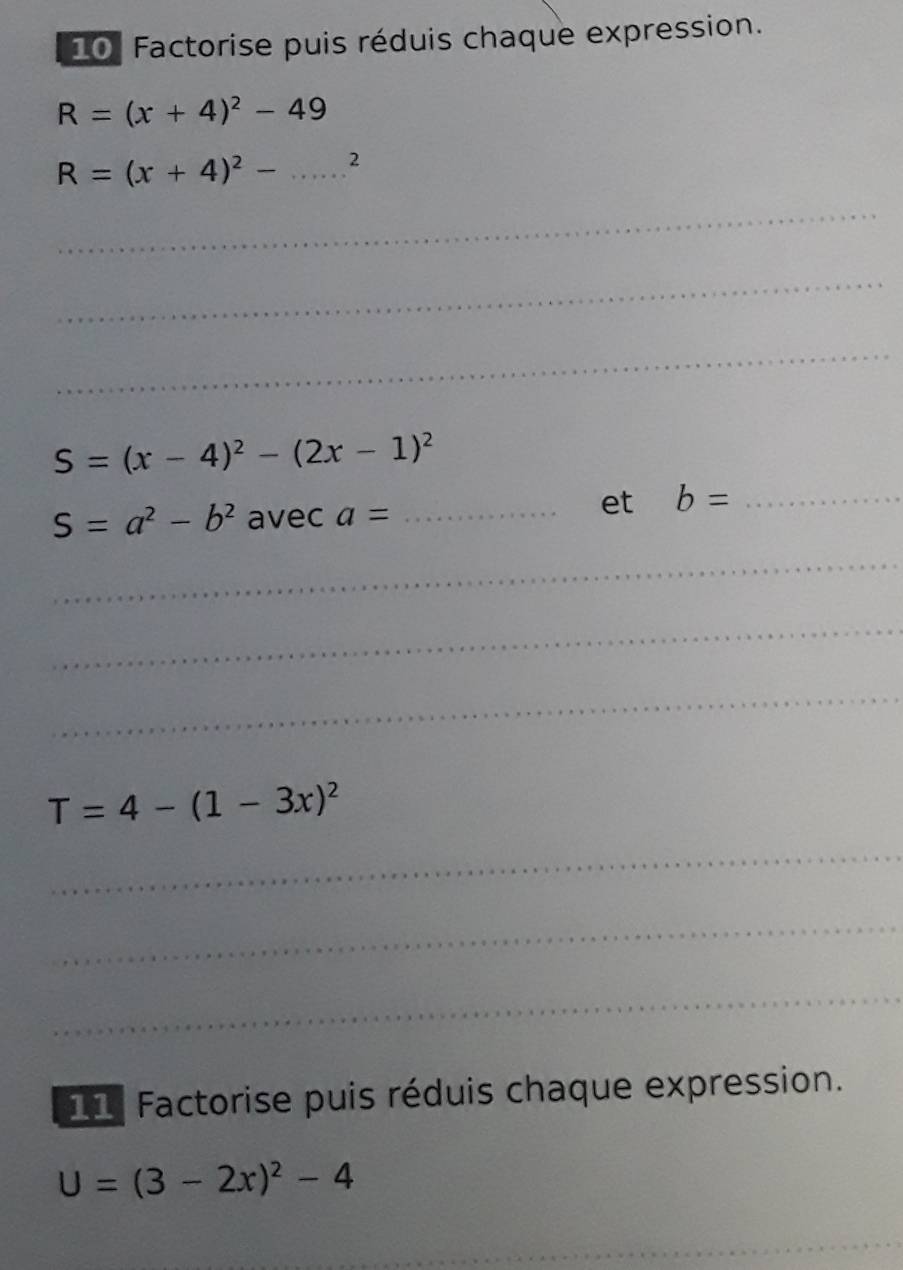 10 Factorise puis réduis chaque expression.
R = (x + 4)² – 49
R = (x + 4)² – ......²
S = (x – 4)² – (2x – 1)²
S = a² – b² avec a = .............. et b = ..............
T = 4 – (1 – 3x)²
11 Factorise puis réduis chaque expression.
U = (3 – 2x)² – 4